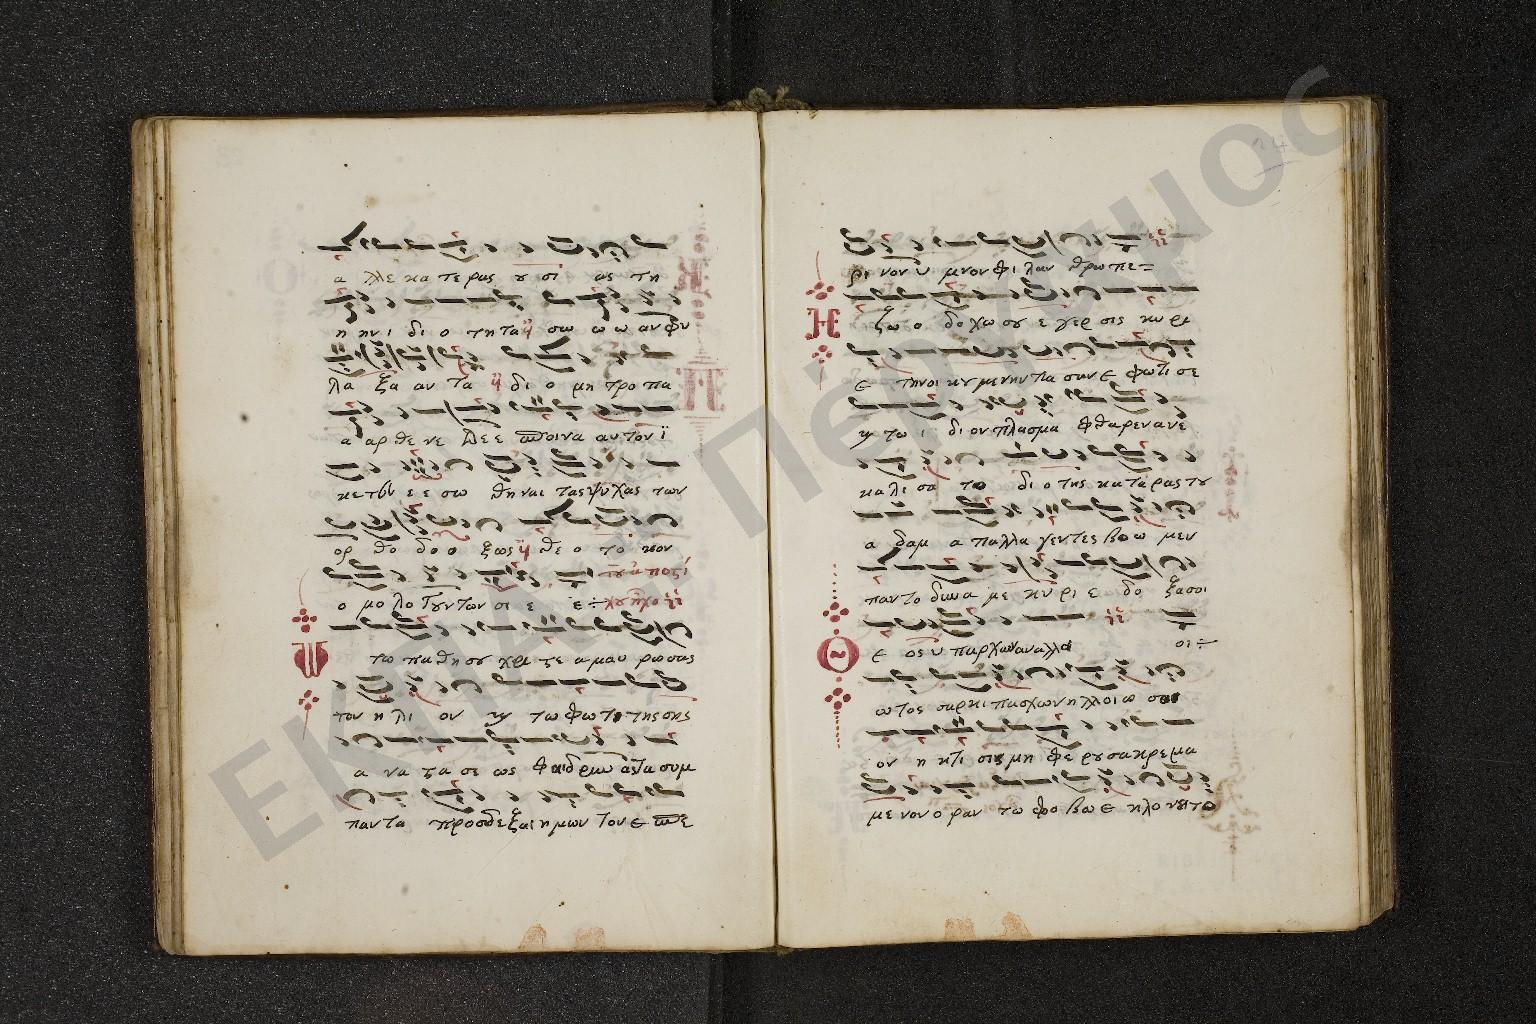 α λλε κα τε ρας ου σι ας τη
η η νι δι ο τη τα σω ω ω αν φυ
λα ξα αν τα δι ο μη τρο πα
α αρ θε νε ε ε ινα αυ τον ι
κε τευ ε ε σω θη ναι τας ψυ χας των
ορ θο δο ο ξως θε ο το κον
ο μο λο γουν των σε ε ε
τω πα θη σου χρι στε α μαυ ρω σας
τον η λι ον τω φω τι της σης
α να στα σε ως φαιδρυνας τα συμ
παν τα προσδεξαι η μων τον ε σπε
ρι νον υ μνον φι λαν θρω πε
Η ζω ο δο χω σου ε γερ σις κυ ρι
ε την οι κου με νην πα σαν ε φω τι σε
τω ι δι ον πλασμα φθαρεν ανε
κα λε σα το δι ο της κα τα ρας του
α δαμ α παλλα γεν τες βοω μεν
παντο δυνα με κυ ρι ε δο ξα σοι
Θ ε ος υ παρχων αναλλοι
ω τος σαρκι πασχων ηλλοι ω σαι
ον η κτι σις μη φε ρου σα κρε μα
με νον ο ραν τω φο βω ε κλο νει το
ΕΚΠΑ - Πέργαμος